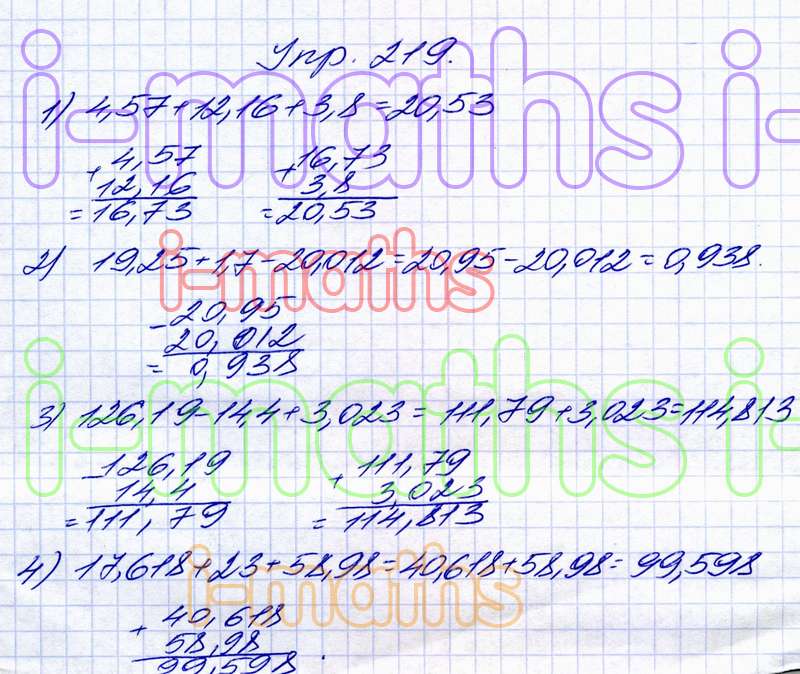 Упр. 219.
1) 4,57+12,16+3,8=20,53
+ 4,57
12,16
= 16,73
+ 16,73
3,8
= 20,53
2) 19,25+1,7-20,012=20,95-20,012=0,938.
- 20,95
20,012
= 0,938
3) 126,19-14,4+3,023 = 111,79+3,023=114,813
- 126,19
14,4
= 111,79
+ 111,79
3,023
= 114,813
4) 17,618+23+58,98=40,618+58,98= 99,598
+ 40,618
58,98
99,598.
i-maths i-maths
i-maths
i-maths i-maths
i-maths